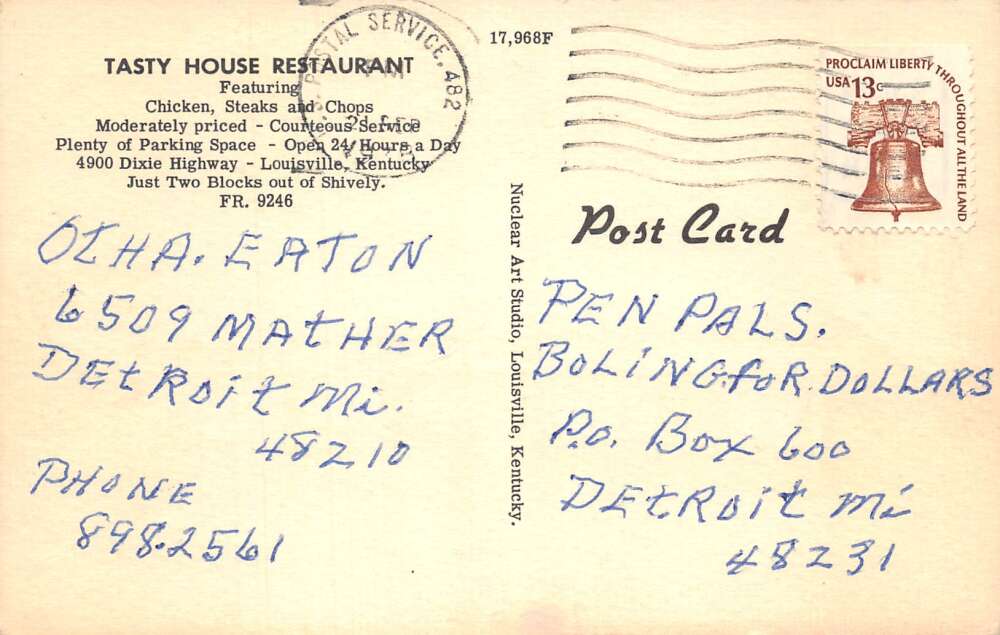 17,968F
TASTY HOUSE RESTAURANT
Featuring
Chicken, Steaks and Chops
Moderately priced - Courteous Service
Plenty of Parking Space - Open 24 Hours a Day
4900 Dixie Highway - Louisville, Kentucky
Just Two Blocks out of Shively.
FR. 9246
POSTAL SERVICE, 482
PROCLAIM LIBERTY THROUGHOUT ALL THE LAND
USA 13c
Post Card
Nuclear Art Studio, Louisville, Kentucky.
OTHA. EATON
6509 MATHER
DEtRoit Mi.
48210
PHONE
898.2561
PEN PALS.
BOLING.foR.DOLLARS
P.o. Box 600
DEtRoit Mi
48231